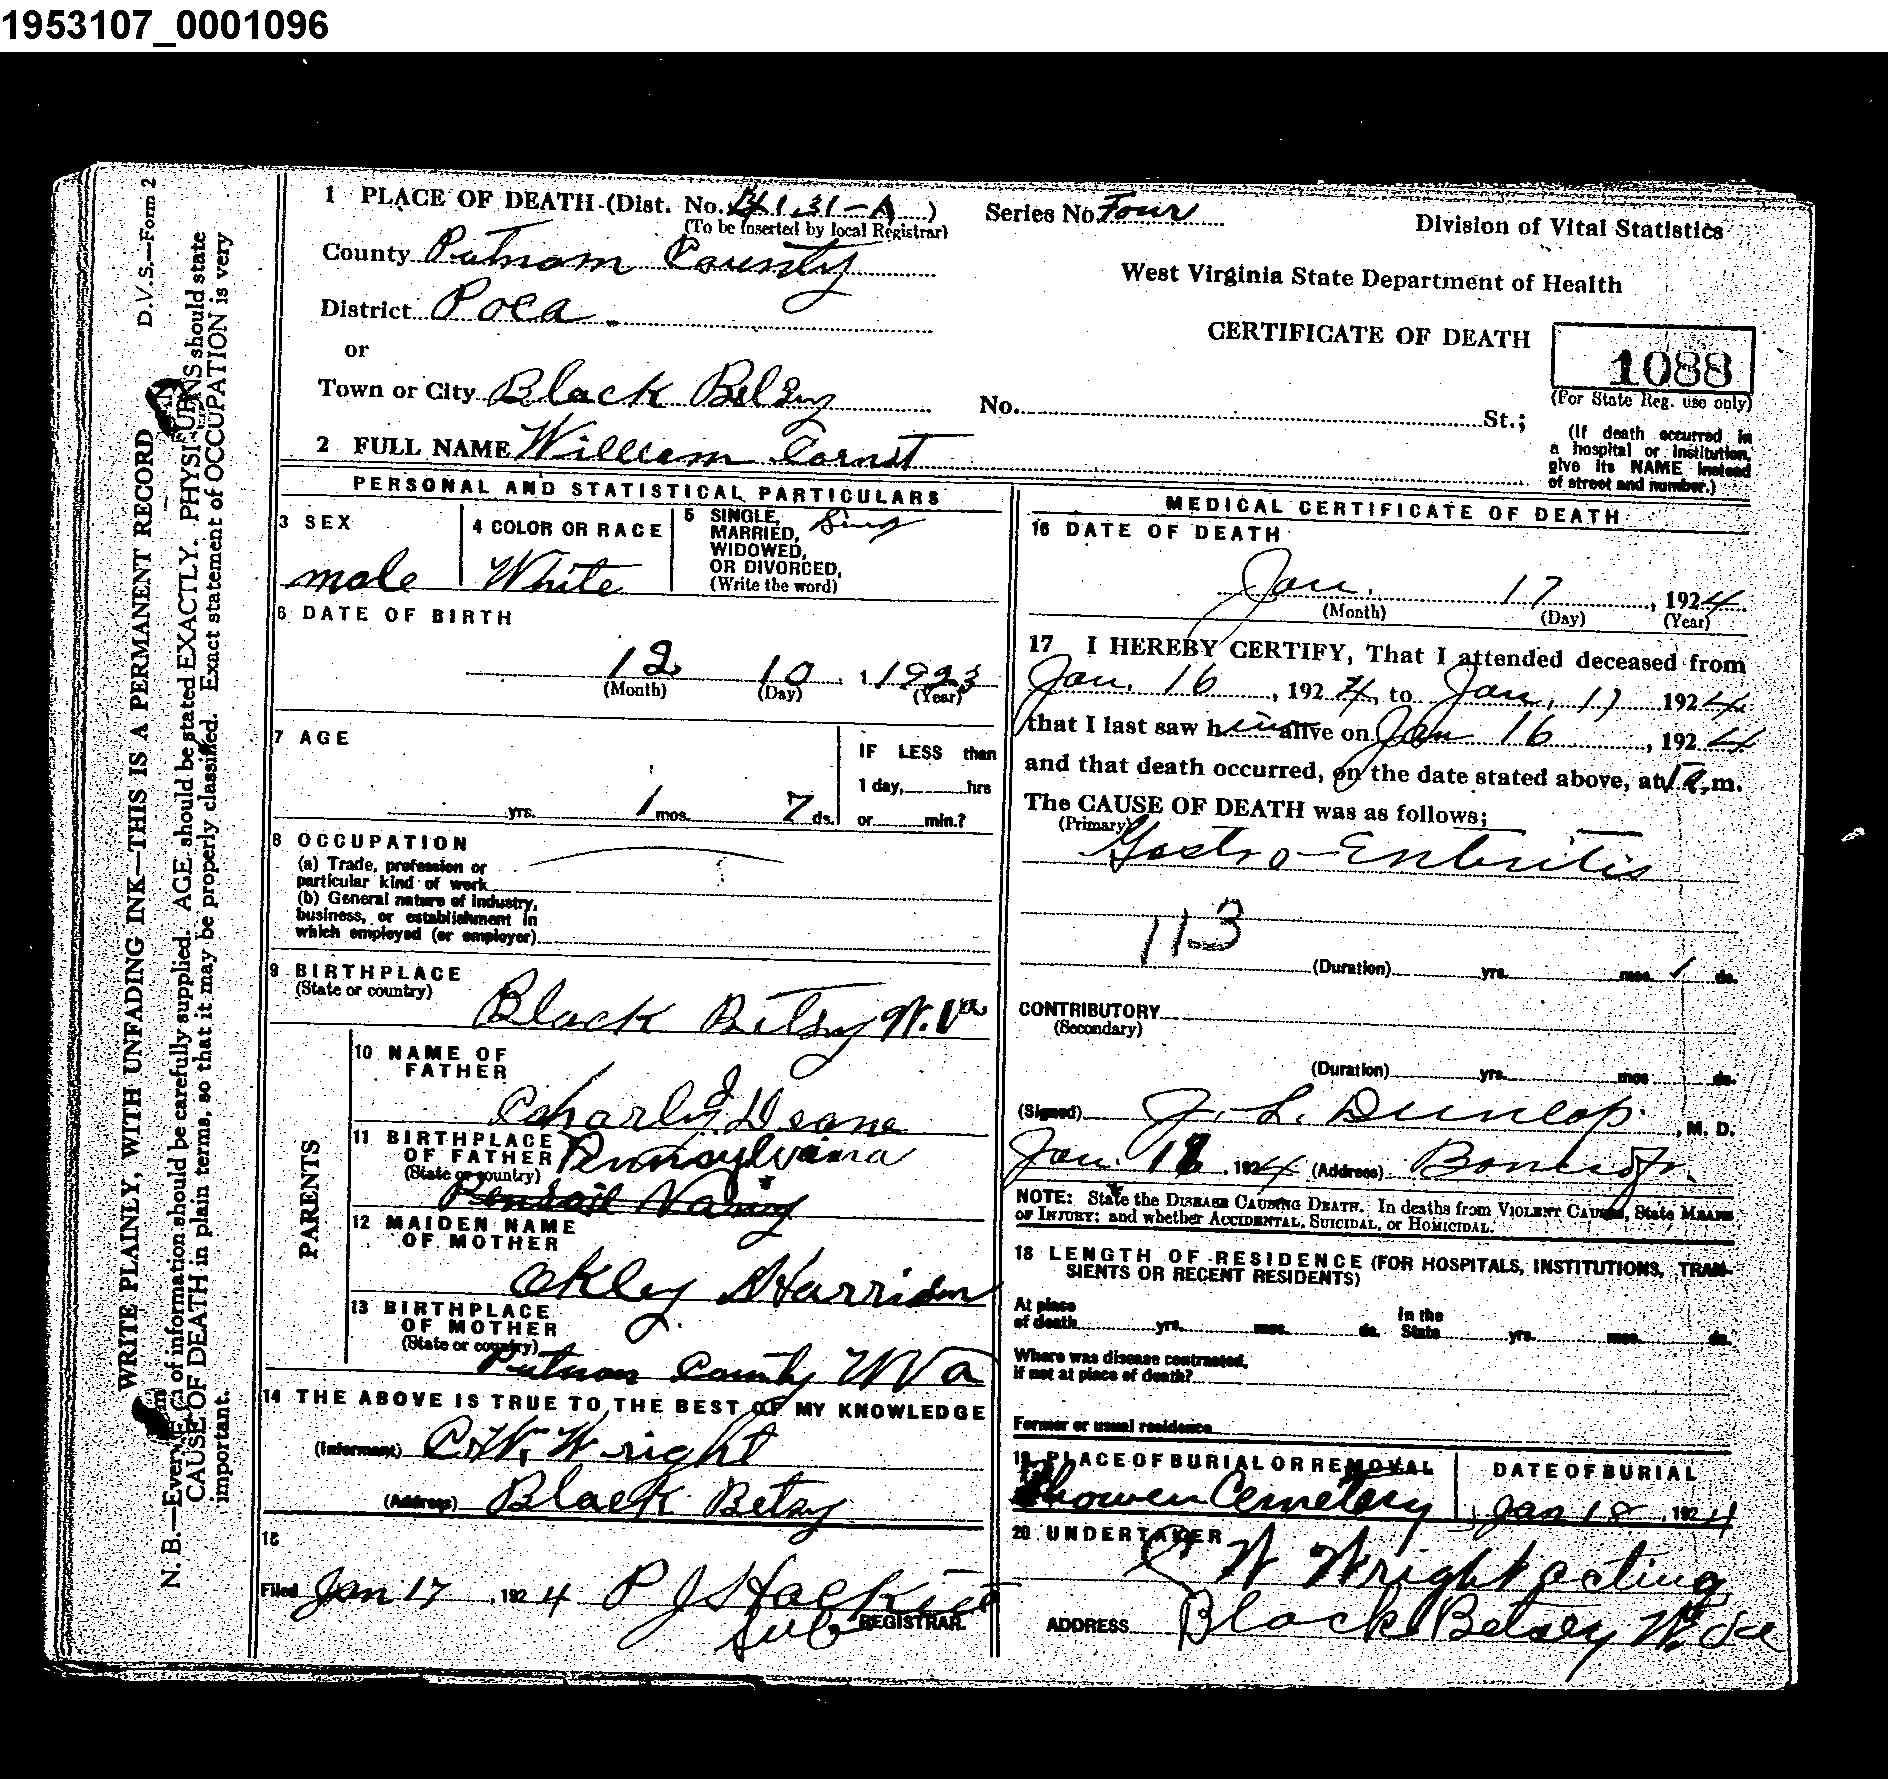 1953107_0001096
D.V.S.—Form 2
WRITE PLAINLY, WITH UNFADING INK—THIS IS A PERMANENT RECORD
N. B.—Every of information should be carefully supplied. AGE should be stated EXACTLY. PHYSI should state
CAUSE OF DEATH in plain terms, so that it may be properly classified. Exact statement of OCCUPATION is very
important.
1 PLACE OF DEATH (Dist. No. 4131-A )
(To be inserted by local Registrar)
Series No. Four
Division of Vital Statistics
County Putnam County
West Virginia State Department of Health
District Poca
CERTIFICATE OF DEATH
or
1088
(For State Reg. use only)
Town or City Black Betsy
No. St.;
(If death occurred in
a hospital or institution,
give its NAME instead
of street and number.)
2 FULL NAME William
PERSONAL AND STATISTICAL PARTICULARS
3 SEX
male
4 COLOR OR RACE
White
5 SINGLE,
MARRIED,
WIDOWED,
OR DIVORCED,
(Write the word)
Sing
6 DATE OF BIRTH
12 10 , 1 1923
(Month) (Day) (Year)
7 AGE
yrs. 1 mos. 7 ds.
IF LESS than
1 day, hrs
or min.?
8 OCCUPATION
(a) Trade, profession or
particular kind of work
(b) General nature of industry,
business, or establishment in
which employed (or employer)
9 BIRTHPLACE
(State or country)
Black Betsy W.Va
PARENTS
10 NAME OF
FATHER
Charly Deane
11 BIRTHPLACE
OF FATHER
(State or country)
Pennsylvania
12 MAIDEN NAME
OF MOTHER
Okley Harrison
13 BIRTHPLACE
OF MOTHER
(State or country)
Putnam County W Va
14 THE ABOVE IS TRUE TO THE BEST OF MY KNOWLEDGE
(Informant) C. W. Wright
(Address) Black Betsy
15
Filed Jan 17 , 1924 P J
Sub REGISTRAR.
MEDICAL CERTIFICATE OF DEATH
16 DATE OF DEATH
Jan. 17 , 1924
(Month) (Day) (Year)
17 I HEREBY CERTIFY, That I attended deceased from
Jan. 16 , 1924, to Jan. 17 1924
that I last saw him alive on Jan 16 , 1924
and that death occurred, on the date stated above, at 1 a.m.
The CAUSE OF DEATH was as follows:
(Primary)
Gastro-Enteritis
113
(Duration) yrs. mos. 1 ds.
CONTRIBUTORY
(Secondary)
(Duration) yrs. mos. ds.
(Signed) J. L. Dunlop , M. D.
Jan. 18 , 1924 (Address) Bancroft
NOTE: State the DISEASE CAUSING DEATH. In deaths from VIOLENT CAUSES, State MEANS
OF INJURY; and whether ACCIDENTAL, SUICIDAL, or HOMICIDAL.
18 LENGTH OF RESIDENCE (FOR HOSPITALS, INSTITUTIONS, TRAN-
SIENTS OR RECENT RESIDENTS)
At place
of death yrs. mos. ds.
In the
State yrs. mos. ds.
Where was disease contracted,
if not at place of death?
Former or usual residence
19 PLACE OF BURIAL OR REMOVAL
Showen Cemetery
DATE OF BURIAL
Jan 18 , 1924
20 UNDERTAKER
C W Wright acting
ADDRESS Black Betsey W.